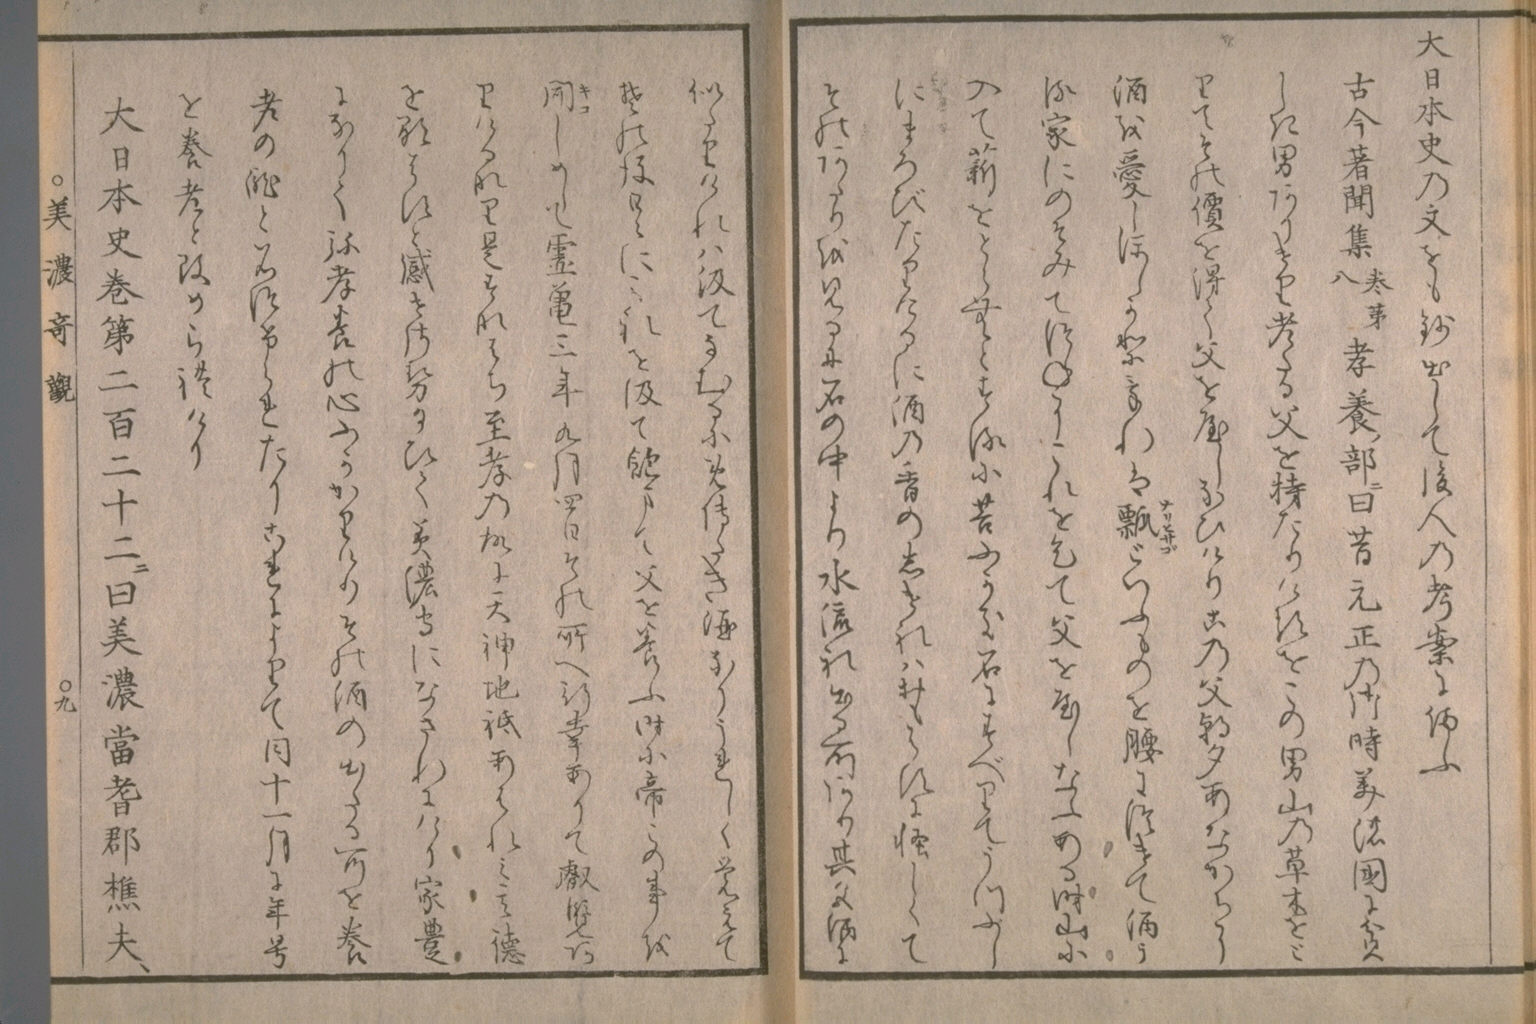 大日本史乃文をも鈔出して後人乃考案に備ふ
古今著聞集巻第八孝養ノ部ニ曰昔元正乃御時美濃國に貧
しき男ありけり老たる父を持たりけるをこの男山乃草木をと
りてその價を得て父を養ひけりこの父朝夕あながちに
酒を愛しほしかりければ瓢ナリヒサゴといふものを腰に付て酒う
る家にのぞみてつねにこれを乞て父を養ふある時山に
入て薪をとらむとするに苔ふかき石にすべりてうつぶし
にまろびたりけるに酒乃香のしければおもはずに怪しくて
そのあたりを見るに石の中より水流れ出る所あり其色酒に
似たりければ汲てなむるに目出たき酒なりうれしく覚えて
其後日々にこれを汲て飽まで父を養ふ時に帝この事を
聞キコしめして霊亀三年九月四日その所へ行幸ありて叡覧あ
りけり是すなはち至孝乃故に天神地祇あはれみて其徳
をあらはすと感ぜさせ給ひて美濃守になされにけり家豊
になりていよいよ孝養の心ふかかりけりその酒の出る所を養
老の瀧と名付られたりこれによりて同十一月に年号
を養老と改められけり
大日本史巻第二百二十二ニ曰美濃當耆郡樵夫、
○美濃奇觀
○九